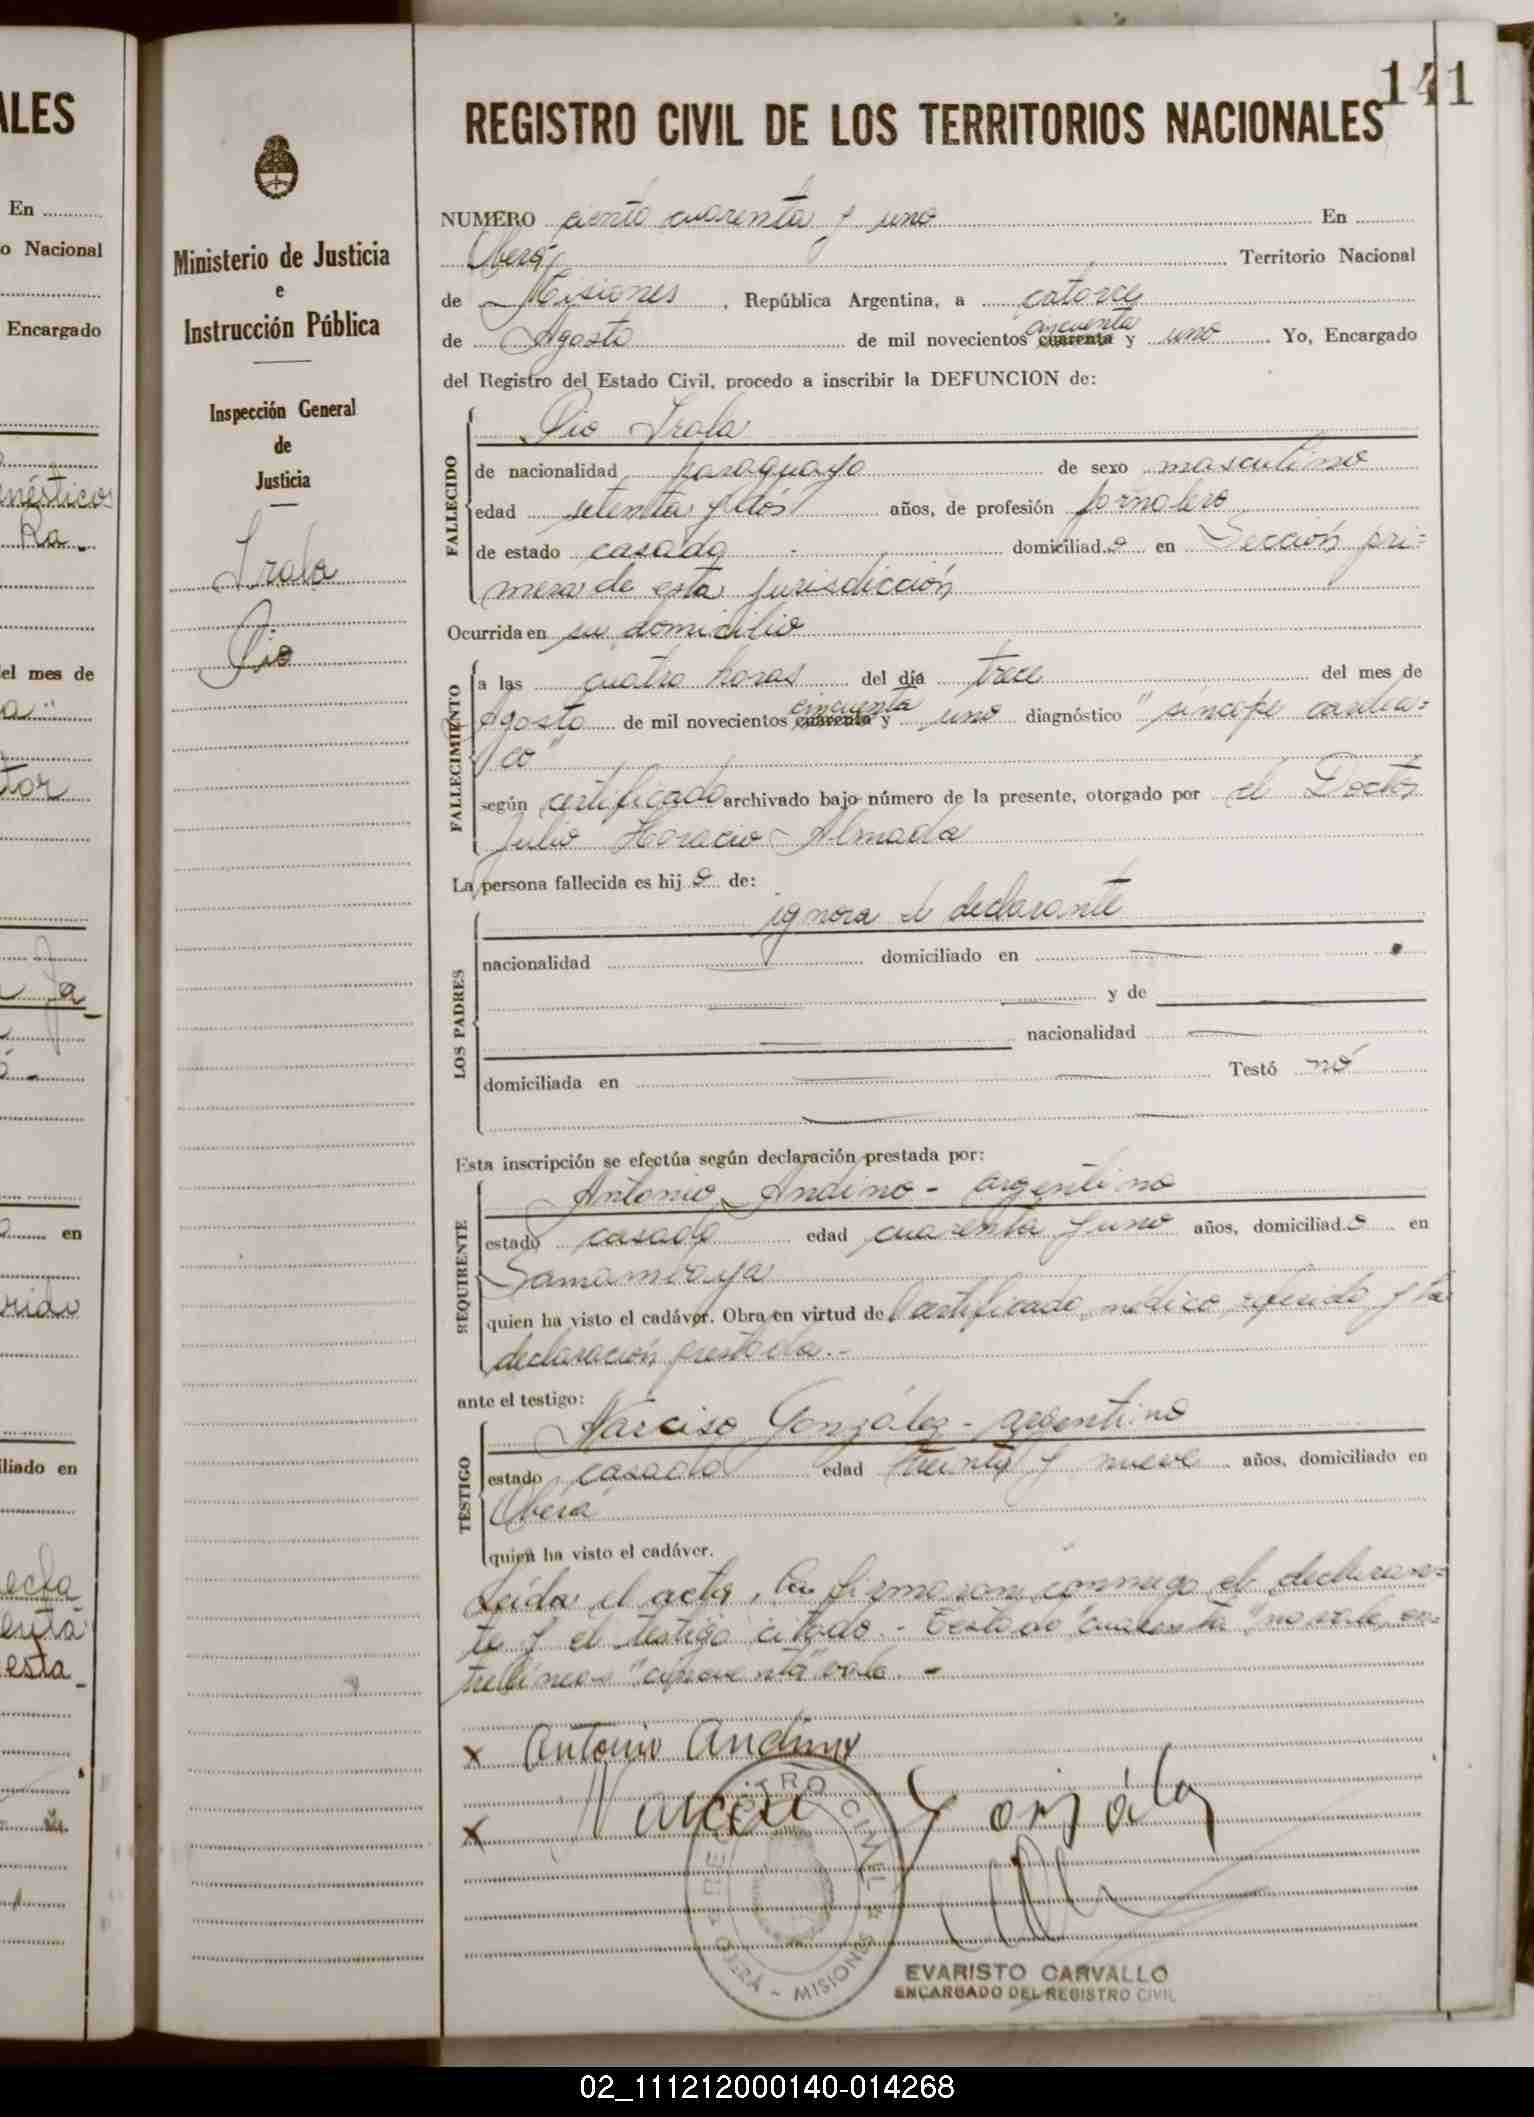 ALES
En
o Nacional
Encargado
enésticos
Ra.-
el mes de
a"
tor
Ja-
en
rido
iliado en
ecta
esta-
Ministerio de Justicia
e
Instrucción Pública
Inspección General
de
Justicia
Irala
Pio
141
REGISTRO CIVIL DE LOS TERRITORIOS NACIONALES
NUMERO ciento cuarenta y uno En
Oberá Territorio Nacional
de Misiones, República Argentina, a catorce
de Agosto de mil novecientos cuarenta cincuenta y uno. Yo, Encargado
del Registro del Estado Civil, procedo a inscribir la DEFUNCION de:
FALLECIDO
Pio Irala
de nacionalidad paraguayo de sexo masculino
edad setenta y dós años, de profesión jornalero
de estado casado domiciliado en Sección pri=
mera de esta jurisdicción
Ocurrida en su domicilio
FALLECIMIENTO
a las cuatro horas del día trece del mes de
Agosto de mil novecientos cuarenta cincuenta y uno diagnóstico "síncope cardía=
co"
según certificado archivado bajo número de la presente, otorgado por el Doctor
Julio Horacio Almada
La persona fallecida es hijo de:
LOS PADRES
ignora el declarante
nacionalidad domiciliado en
y de
nacionalidad
domiciliada en Testó nó
Esta inscripción se efectúa según declaración prestada por:
REQUIRENTE
Antonio Andino - argentino
estado casado edad cuarenta y uno años, domiciliado en
Samambaya
quien ha visto el cadáver. Obra en virtud de certificado médico referido y la
declaración prestada.-
ante el testigo:
TESTIGO
Narciso González - argentino
estado casado edad treinta y nueve años, domiciliado en
Oberá
quien ha visto el cadáver.
Leída el acta, la firmaron conmigo el declaran=
te y el testigo citado.- Testado "cuarenta" no vale, en=
trelíneas "cincuenta" vale.-
x Antonio Andino
x Narciso González
REGISTRO CIVIL
OBERÁ - MISIONES
EVARISTO CARVALLO
ENCARGADO DEL REGISTRO CIVIL
02_111212000140-014268